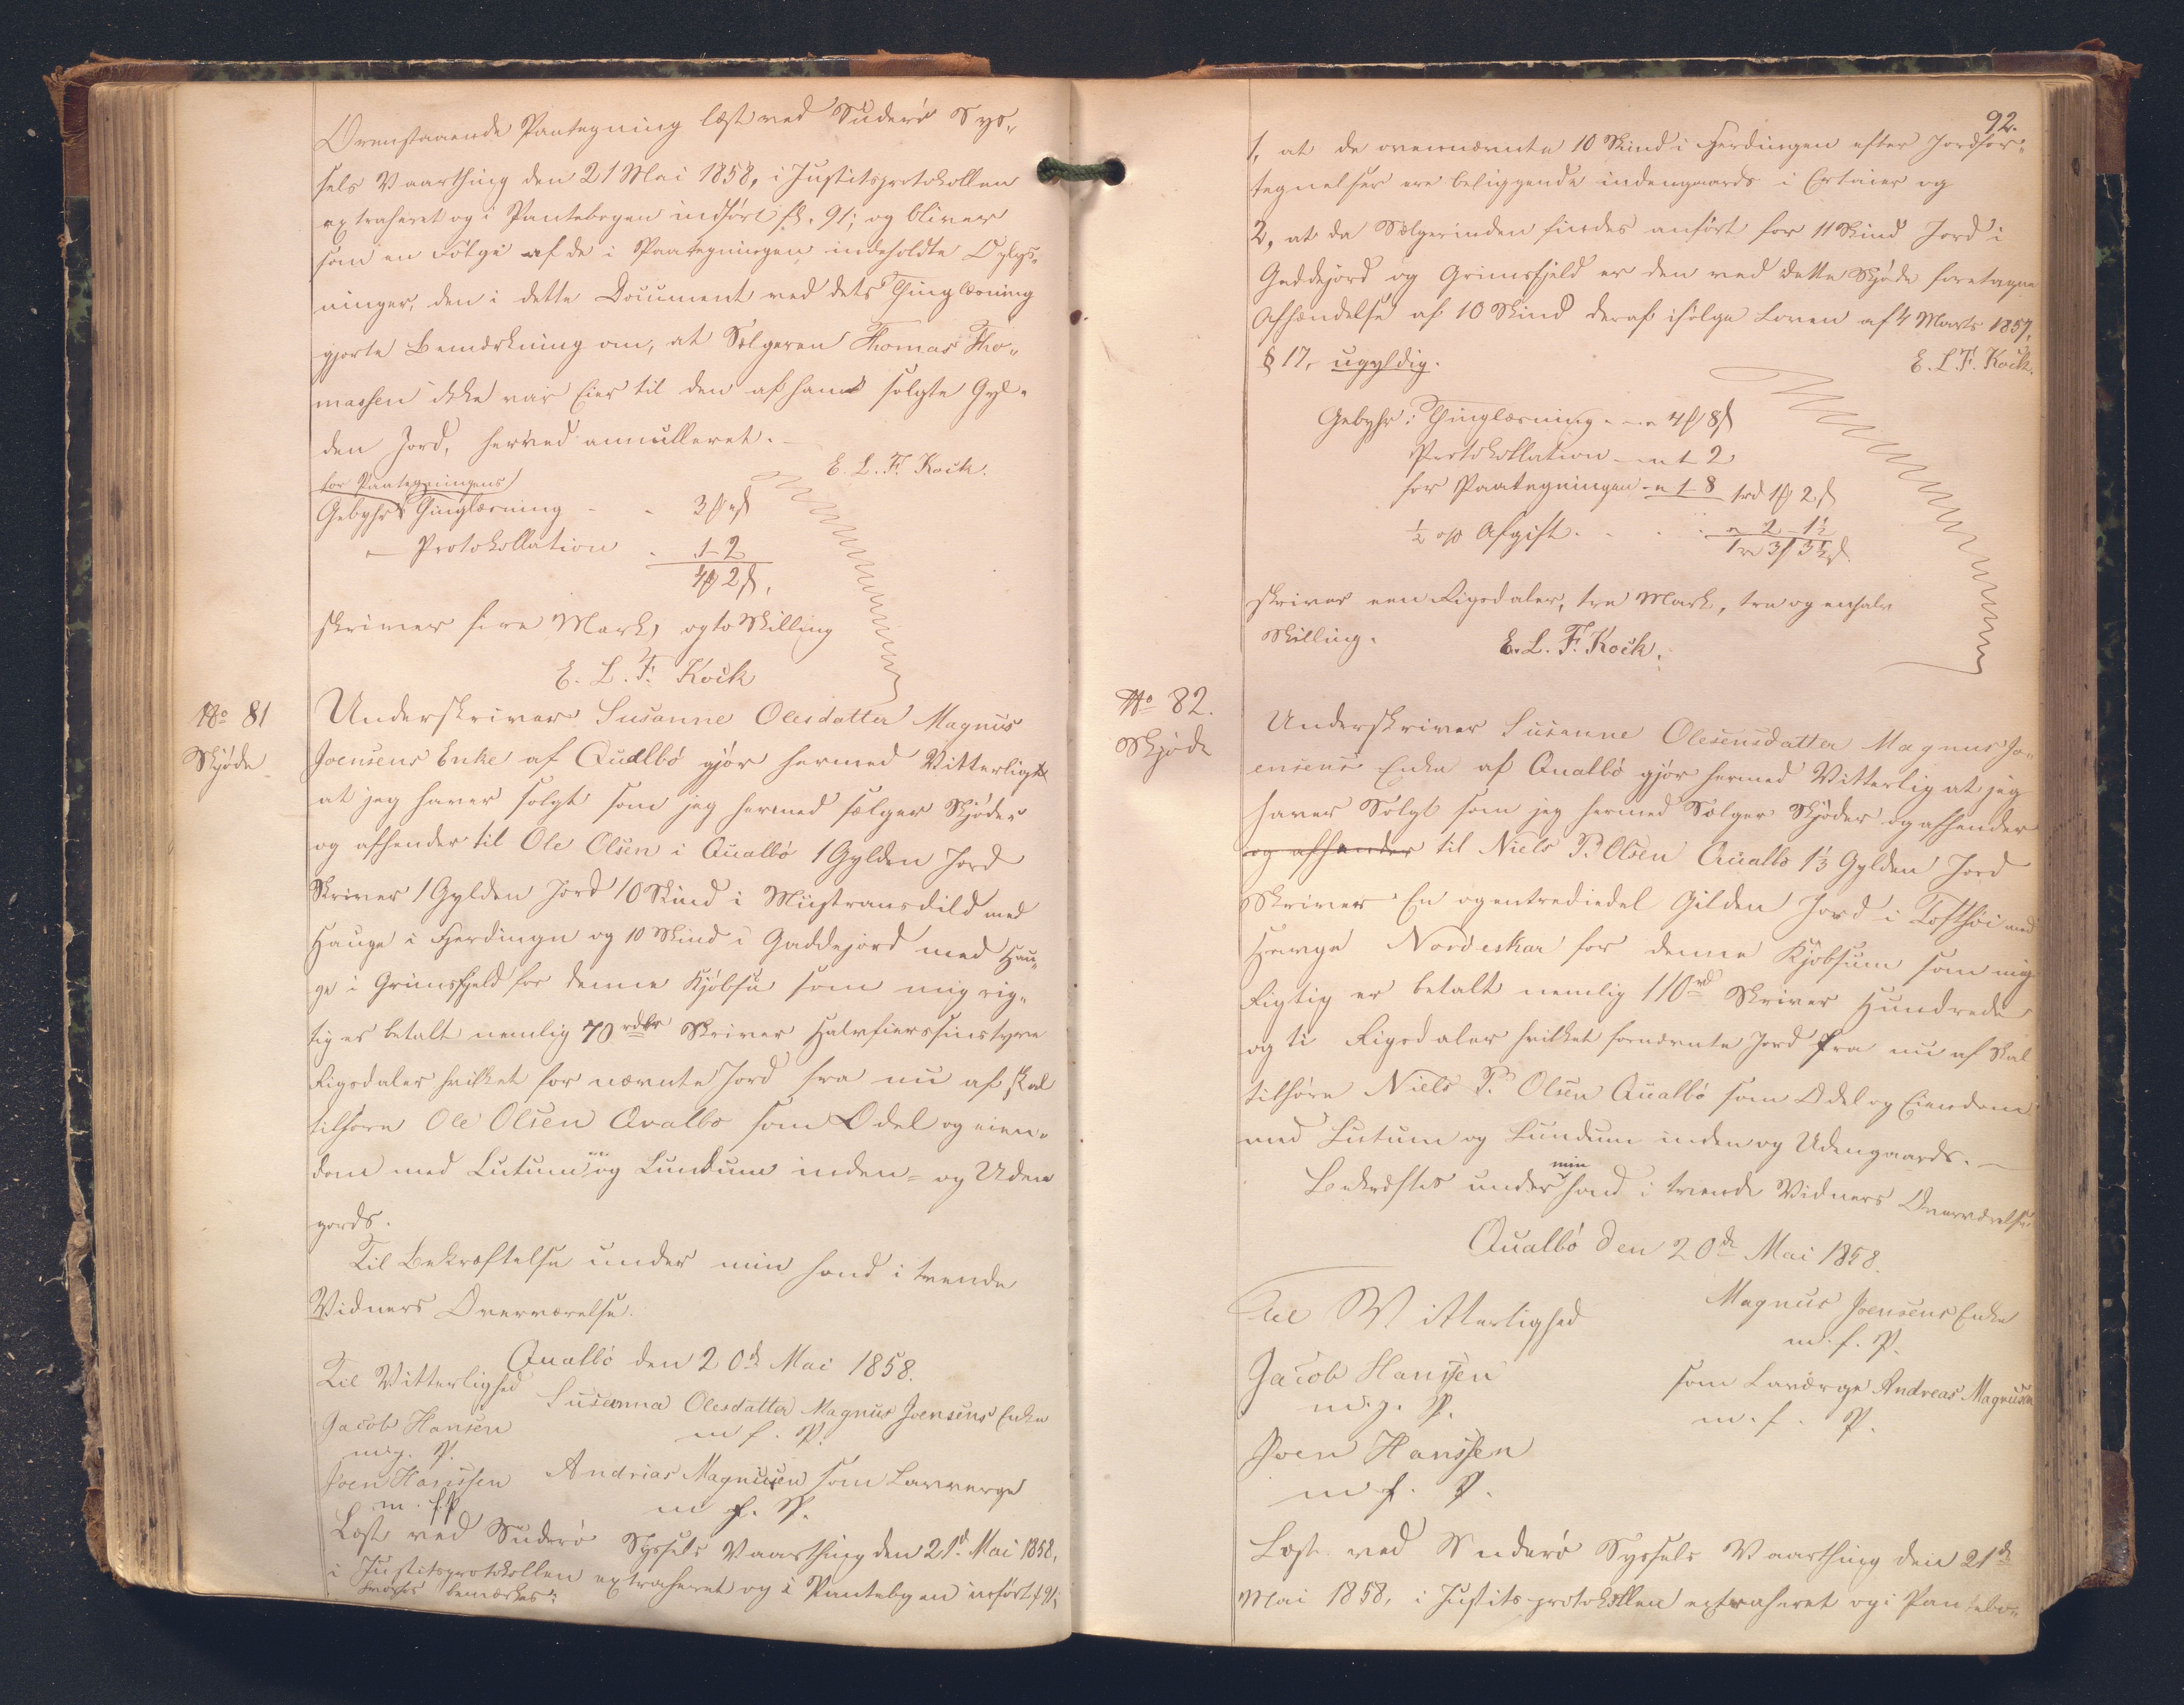 Ovenstaaende Paategning læst ved Suderø Sys„
sels Vaarthing den 21 Mai 1858, i Justitsprotokollen
extraheret og i Pantebogen indført fol. 91; og bliver
som en Følge af de i Paategningen indeholdte Oplys„
ninger, den i dette Document ved dets Thinglæsning
gjorte Bemærkning om, at Sælgeren Thomas Tho„
massen ikke var Eier til den af ham solgte Gyl„
den Jord, herved annulleret. —
E. L. F. Kock.
for Paategningens
Gebyhr Thinglæsning - - 3 ℳ " ß
— Protokollation - 1 - 2
4 ℳ 2 ß,
skriver fire Mark, og to Skilling
E. L. F. Kock
No 81
Skjøde
Underskriver Susanne Olesdatter Magnus
Joensens Enke af Qualbø gjør hermed Vitterligt
at jeg haver solgt som jeg hermed sælger Skjøder
og afhender til Ole Olsen i Qualbø 1 Gylden Jord
Skriver 1 Gylden Jord 10 Skind i Miistransdild med
Hauge i Fjerdingen og 10 Skind i Gaddejord med Hau„
ge i Grimsfjeld for denne Kjøbsu som mig rig„
tig er betalt nemlig 70 rdlr Skriver Halvfierssinstyve
Rigsdaler hvilket for nævnte Jord fra nu af skal
tilhøre Ole Olsen Qvalbø som Odel og eien„
dom med Lutum og Lundum inden- og Uden
gards.
Til Bekræftelse under min Hand i tvende
Vidners Overværelse.
Qualbø den 20de Mai 1858.
Til Vitterlighed Susanna Olesdatter Magnus Joensens Enke
Jacob Hansen m f. P.
m. f. P.
Joen Hanssen Andrias Magnusen som Lavverge
m. f. P. m f. P.
Læst ved Suderø Syssels Vaarthing den 21d. Mai 1858,
i Justitsprotokollen extraheret og i Pantebogen indført f 91;
hvorved bemærkes:
92.
1, at de ovennævnte 10 Skind i Fjerdingen efter Jordfor„
tegnelsen ere beliggende indengaards i Ertrier og
2, at da Sælgerinden findes anført for 11 Skind Jord i
Gaddejord og Grimsfjeld er den ved dette Skjøde foretagne
Afhændelse af 10 Skind deraf ifølge Loven af 4 Marts 1857,
§ 17, ugyldig.
E. L. F. Kock.
Gebyhr: Thinglæsning . — " 4 ℳ 8 ß
Protokollation — " 1 - 2
for Paategningen — " 1 - 8 1 rd 1 ℳ 2 ß
½ op Afgift . . . " 2 - 1½
1 rd 3 ℳ 3½ ß
skriver een Rigsdaler, tre Mark, tre og en halv
Skilling.
E. L. F. Kock.
No 82.
Skjøde
Underskriver Susanne Olesensdatter Magnus Jo„
ensens Enke af Qualbø gjør hermed Vitterlig at jeg
haver Solgt som jeg hermed Sælger Skjøder og afhender
og afhender til Niels P. Olsen Qualbø 1⅓ Gylden Jord
Skriver En og entrediedel Gilden Jord i Tofthøi med
Hauge Nordeskar for denne Kjøbsum som mig
Rigtig er betalt nemlig 110 rd Skriver Hundrede
og ti Rigsdaler hvilket fornævnte Jord fra nu af Skal
tilhøre Niels P. Olsen Qualbø som Odel og Eiendom
med Lutum og Lundum inden og Udengaards. —
Bekræftes under min Hand i tvende Vidners Overværelse
Qualbø den 20de Mai 1858.
Til Vitterlighed Magnus Joensens Enke
m. f. P.
Jacob Hanssen som Laværge Andreas Magnusen
m. f. P. m. f. P.
Joen Hanssen
m f. P.
Læst ved Suderø Syssels Vaarthing den 21de
Mai 1858, i Justitsprotokollen extraheret og i Pantebo„